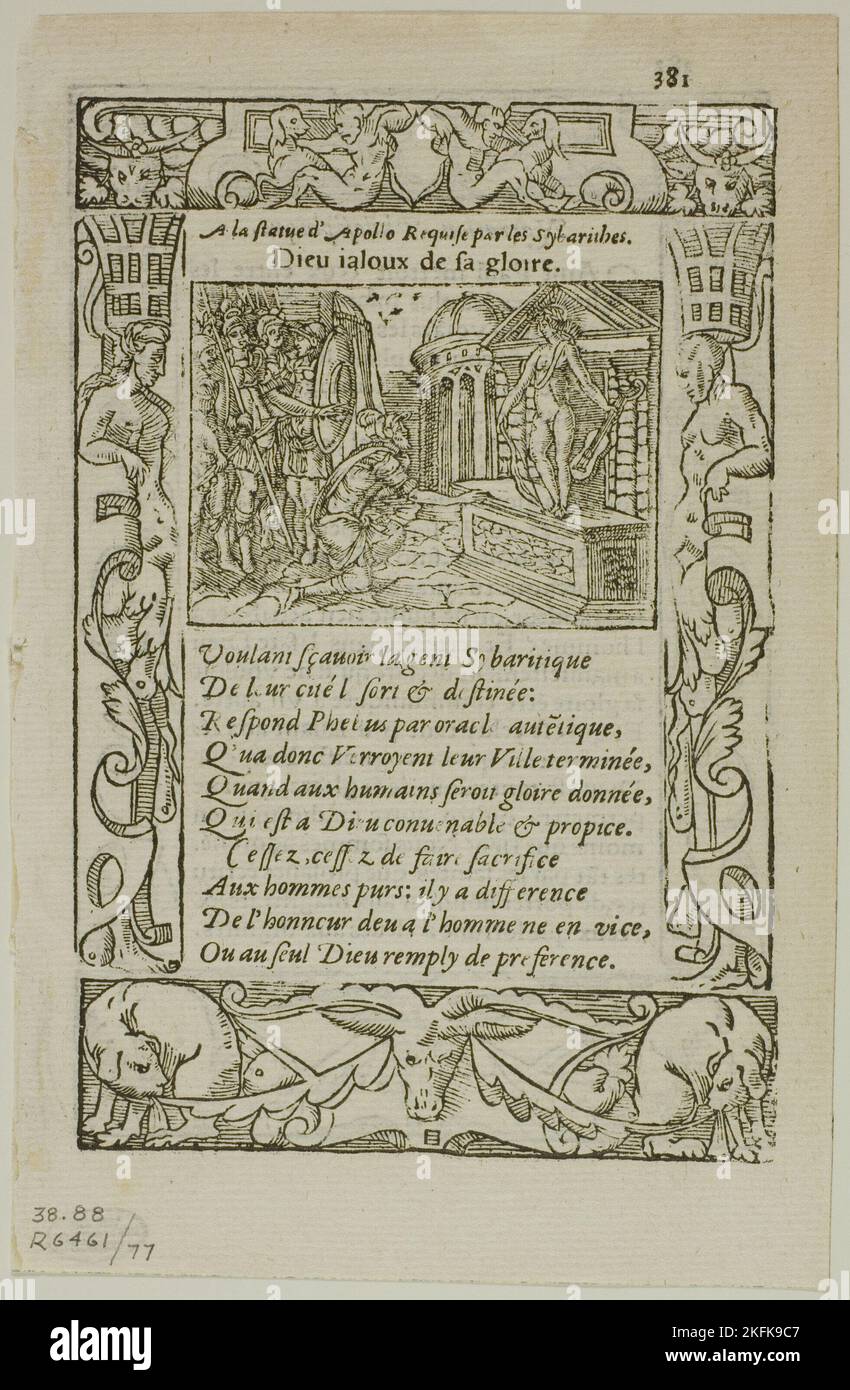 381
A la ſtatue d'Apollo Requiſe par les Sybarithes.
Dieu ialoux de ſa gloire.
Voulant ſçauoir la gent Sybaritique
De leur cité l ſort & deſtinée:
Reſpond Phebus par oracle autẽtique,
Q'ua donc Verroyent leur Ville terminée,
Quand aux humains ſeroit gloire donnée,
Qui eſt a Dieu conuenable & propice.
Ceſſez, ceſſez de faire ſacrifice
Aux hommes purs: il y a difference
De l'honneur deu a l'homme ne en vice,
Ou au ſeul Dieu remply de preference.
38.88
R6461/77
alamy
Image ID: 2KFK9C7
www.alamy.com